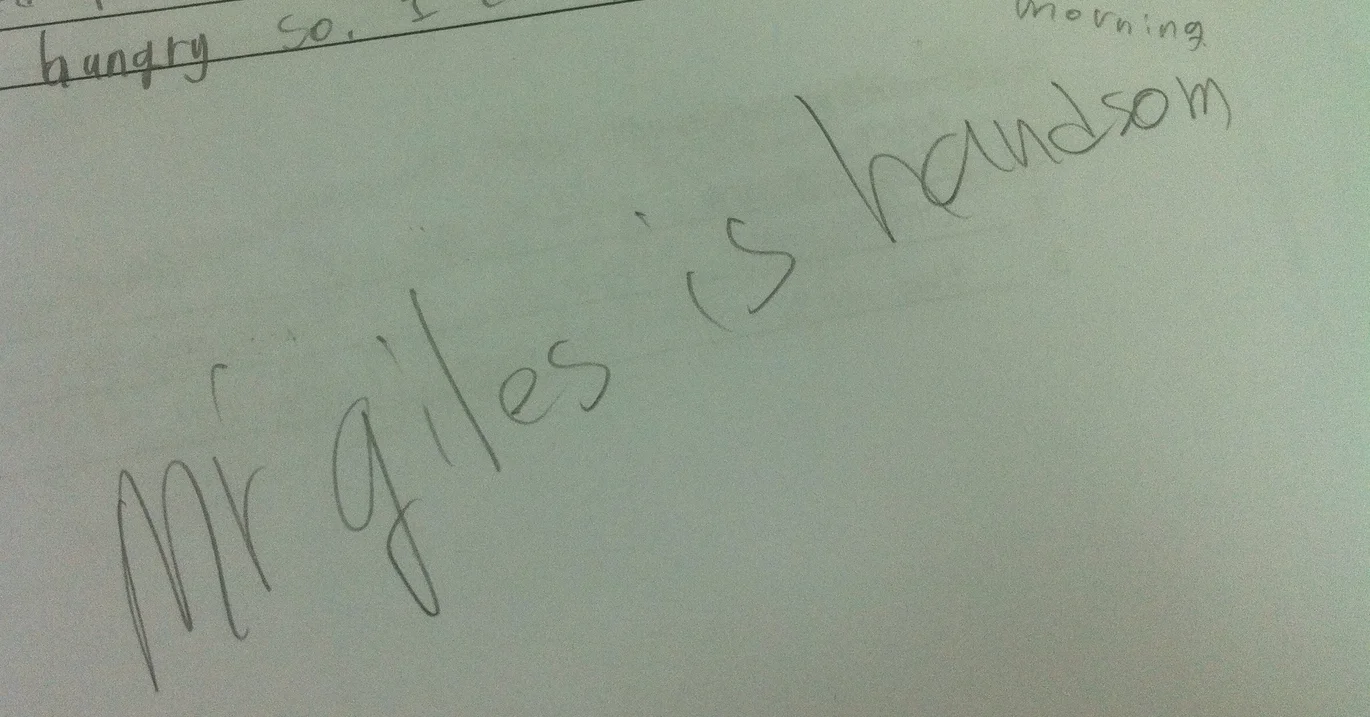 hungry so. I
morning
Mr giles is handsom